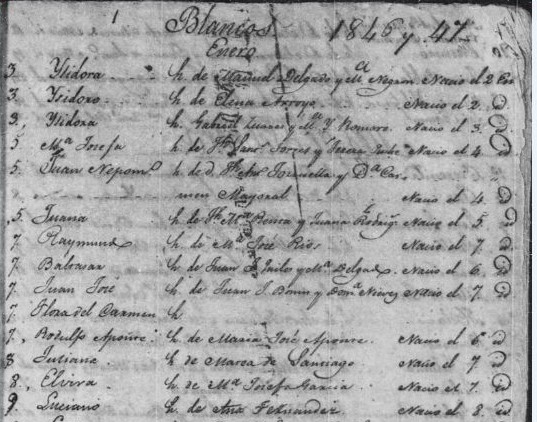 1
Blancos
1846 y 47
Enero
3. Ysidora h. de Manuel Delgado y Mª Negron Nacio el 2
3. Ysidoro h. de Elena Arroyo Nacio el 2. id
3. Ysidora h. Gabriel Suares y Mª Y. Romero. Nacio el 3. id
5. Mª Josefa h. de Torres y Teresa Nacio el 4 id
5. Juan Nepomº h. de d. Torruella y Dª Car
men Mayoral Nacio el 4 id
5. Juana h. de Mª y Juana Rodrigz Nacio el 5 id
7. Raymundo h. de Mª José Rios Nacio el 7 id
7. Baltasar h. de Juan y Mª Delgado. Nacio el 6 id
7. Juan José h. de Juan J. Bonin y Nieves Nacio el 7 id
7. Flora del Carmen h
7. Rodulfo Aponte. h. de Maria José Aponte. Nacio el 6 id
8 Juliana h. de Marca de Santiago Nacio el 7 id
8. Elvira h. de Mª Josefa Garcia Nacio el 7. id
9. Luciano h. de Ana Fernandez. Nacio el 8. id